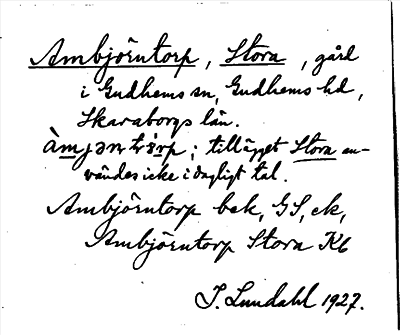 Ambjörntorp, Stora, gård
i Gudhems sn, Gudhems hd,
Skaraborgs län.
tillägget Stora an-
vändes icke i dagligt tal.
Ambjörntorp bek, GS, ek,
Ambjörntorp Stora Kb
I. Lundahl 1927.